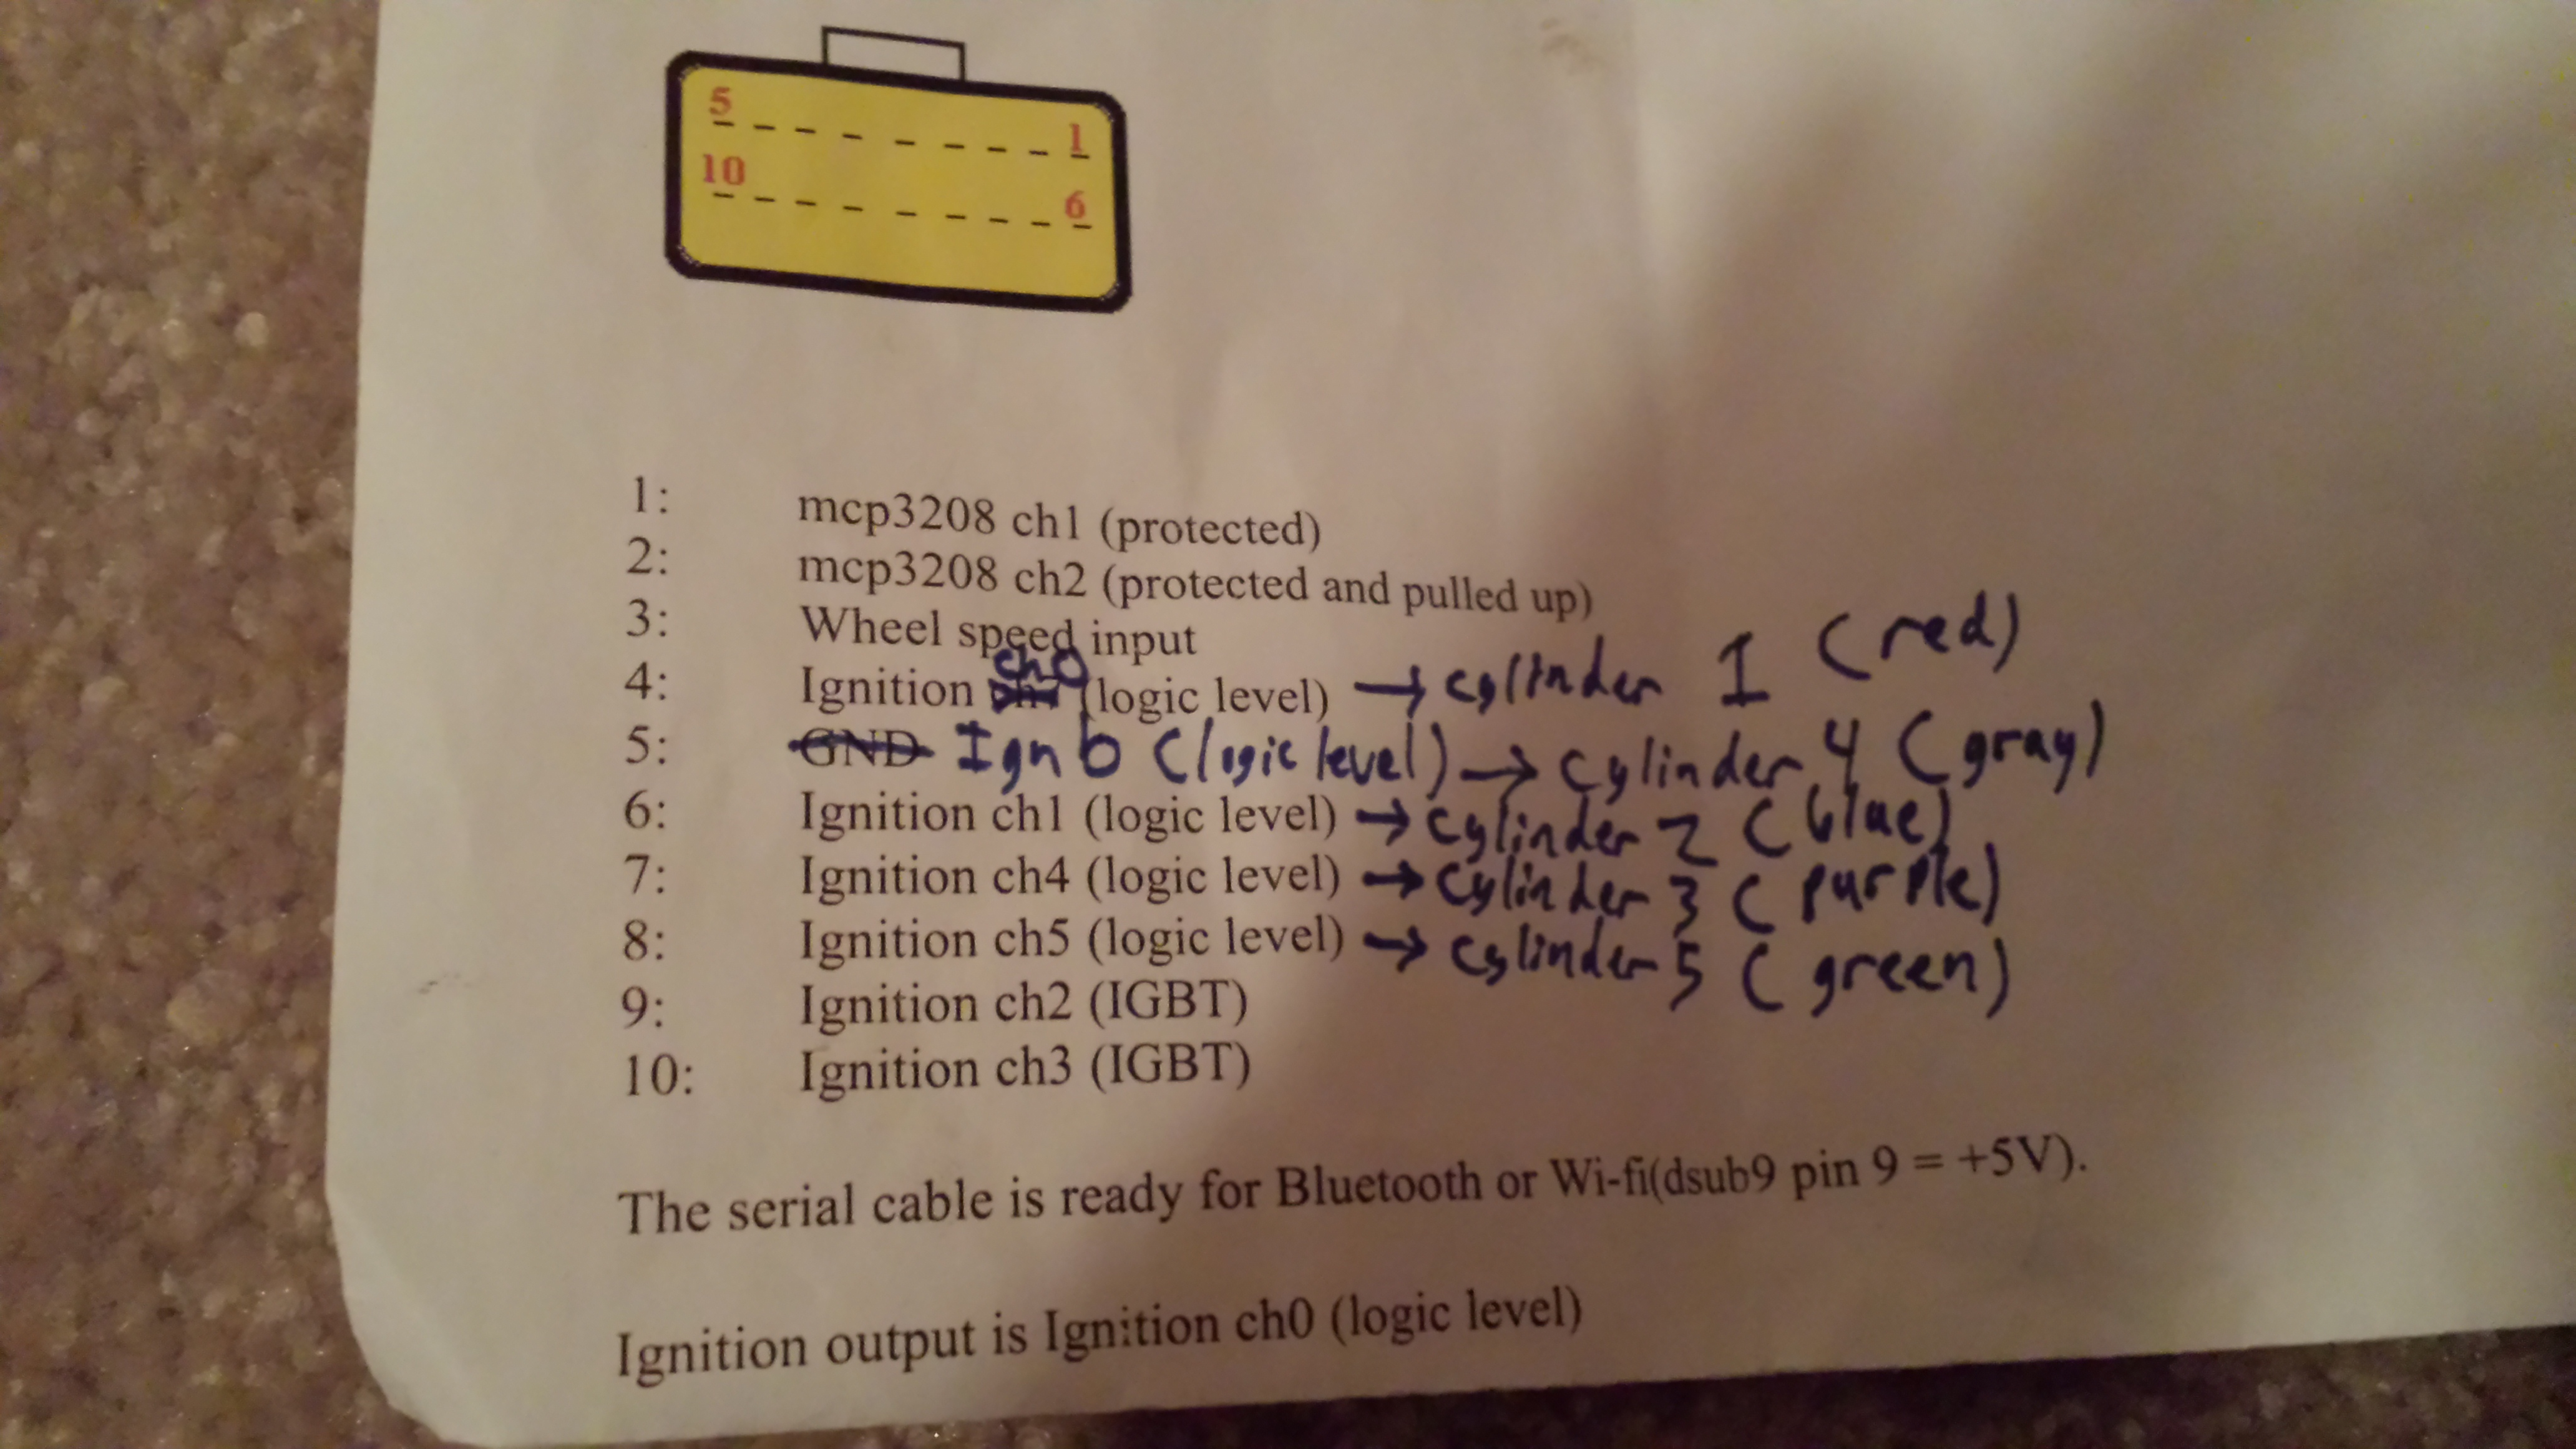 5 1
10 6
1: mcp3208 ch1 (protected)
2: mcp3208 ch2 (protected and pulled up)
3: Wheel speed input
4: Ignition ch0 (logic level) → cylinder 1 (red)
5: GND Ign 6 (logic level) → cylinder 4 (gray)
6: Ignition ch1 (logic level) → cylinder 2 (blue)
7: Ignition ch4 (logic level) → cylinder 3 (purple)
8: Ignition ch5 (logic level) → cylinder 5 (green)
9: Ignition ch2 (IGBT)
10: Ignition ch3 (IGBT)
The serial cable is ready for Bluetooth or Wi-fi(dsub9 pin 9 = +5V).
Ignition output is Ignition ch0 (logic level)